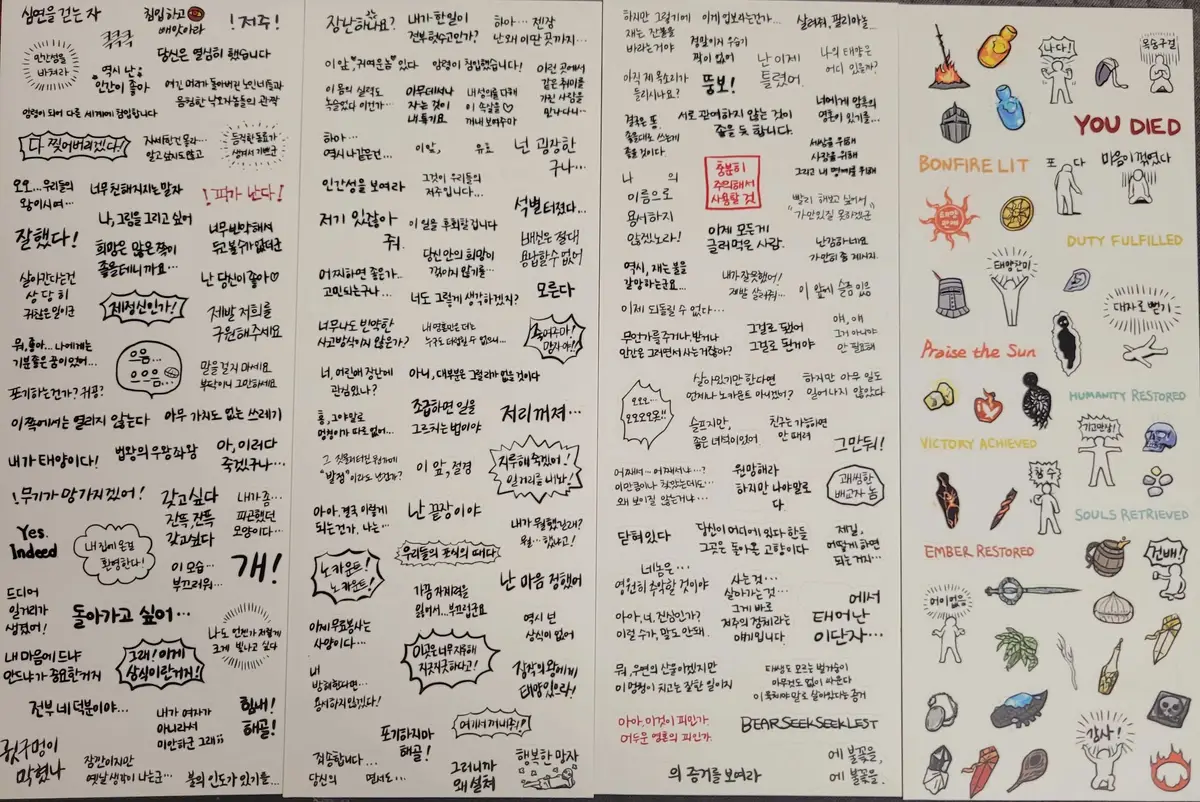 심연을 걷는 자
침입하고
빼앗아라
!저주!
큭큭큭
인간성을
바쳐라
당신은 열심히 했습니다
역시 난
인간이 좋아
여긴 머리가 돌아버린 노인네들과
음험한 낙오자놈들의 관짝
암령이 되어 다른 세계에 침입합니다
다 찢어버리겠다!
자세한건 몰라…
알고 싶지도 않고
동석한 동료가
생겨서 기쁘군
오오…우리들의
왕이시여…
너무 친해지지는 말자
!피가 난다!
나, 그림을 그리고 싶어
잘했다!
희망은 많은 쪽이
좋을테니까요…
너무 빈약해서
두고 볼 수가 없더군
살아간다는건
상당히
귀찮은 일이군
제정신인가!
난 당신이 좋아♡
제발 저희를
구원해주세요
뭐, 좋아… 나에게는
기분좋은 꿈이었어…
으음…
으으음…
말을 걸지 마세요
부탁이니 그만하세요
포기하는건가? 귀공?
이쪽에서는 열리지 않는다
아무 가치도 없는 쓰레기
내가 태양이다!
법왕의 우왕좌왕
아, 이러다
죽겠구나…
!무기가 망가지겠어!
갖고싶다
잔뜩, 잔뜩
갖고싶다
내가 좀…
피곤했던
모양이다…
Yes.
Indeed
내 집에 온걸
환영한다!
이 모습…
부끄러워…
개!
드디어
일거리가
생겼어!
돌아가고 싶어…
나도 언젠가 저렇게
크게 빛나고 싶다
내 마음에 드냐
안드냐가 중요한거지
그래! 이게
상식이란거지!!
전부 네 덕분이야…
내가 여자가
아니라서
미안하군 그래
힘내!
해골!
귓구멍이
막혔나
잠깐이지만
옛날 생각이 나는군…
불의 인도가 있기를…
장난하나요?
내가 한 일이
전부 헛수고인가?
하아… 젠장
난 왜 이딴 곳까지…
이 앞, 귀여운 놈 있다
암령이 침입했습니다!
이런 곳에서
같은 취미를
가진 사람을
만나다니…
이 몸의 실력도
녹슬었다 이건가…
아무데서나
자는 것이
내 특기요
내 성의를 다해
이 속살을♡
꺼내 보여주마
하아…
역시 나같은건…
이 앞,
유효
넌 굉장한
구나…
인간성을 보여라
그것이 우리들의
저주입니다…
저기 있잖아
줘.
이 일을 후회할겁니다
석별 터졌다…
당신 안의 희망이
꺾이지 않기를…
배신은 절대
용납할 수 없어
어찌하면 좋은가…
고민되는구나…
너도 그렇게 생각하겠지?
모른다
너무나도 빈약한
사고방식이지 않은가?
죽어주마!
망자야!!
너, 어린애 장난에
관심있나?
아니, 대부분은 그럴리가 없을 것이다
흥, 그야말로
멍청이가 따로없어…
조급하면 일을
그르치는 법이야
저리꺼져…
이 앞, 절경
지루해 죽겠어!
일거리를 내놔!
아아, 결국 이렇게
되는건가. 나는…
난 끝장이야
내가 뭘 했길래?
뭘…했냐고!
노 카운트!
노 카운트!
우리들의 포식의 때다
가끔 자제력을
잃어서…부끄럽군요
난 마음 정했어
이제 무료봉사는
사양이다…
이 곳은 너무 지루해
지긋지긋하다고!
역시 넌
상식이 없어
내
방해한다면…
용서하지 않겠다!
짐작의 왕에게
태양 있으라!
여기서 꺼내주!!
죄송합니다…
당신의 면서도…
포기하지마
해골!
그러니까
왜 설쳐
행복한 망자
하지만 그렇기에
재는, 잔불을
바라는거야
이게 업보라는건가…
살려줘, 팔리아놀…
정말이지 우습기
짝이 없어
난 이제
틀렸어.
나의 태양은
어디 있을까?
아직 제 목소리가
들리시나요?
뚱보!
너에게 암흑의
영혼이 있기를…
결국은 똥.
좋을대로 쓰는게
좋을 것이다.
서로 관여하지 않는 것이
좋을 듯 합니다.
세상을 위해
사람을 위해
그리고 내 명예를 위해
충분히
주의해서
사용할 것
나 의
이름으로
용서하지
않겠노라!
빨리 해보고 싶어서
가만있질 못하겠군
이제 모든게
글러먹은 사람.
난감하네요
가만히 좀 계시지.
역시, 재는 불을
갈망하는군요…
내가 잘못했어!
제발 살려줘…
이 앞에 슬픔 있음
이제 되돌릴 수 없다…
무언가를 주거나 받거나
인간은 그러면서 사는거잖아?
그걸로 됐어
그걸로 된거야
얘, 얘
그거 아니야
안 필요해
오오오…
오오오오옷!!
살아있기만 한다면
언제나 노카운트 아니겠어?
하지만 아무 일도
일어나지 않았다
슬프지만,
좋은 녀석이었어
친구는 가능하면
안 때려
그만둬!
어째서…어째서냐…?
이만큼이나 찾았는데도…
왜 보이질 않는거냐…
원망해라
하지만 나야말로
다.
괘씸한
배교자 놈
닫혀있다
당신이 어디에 있다 한들
그곳은 돌아올 고향이다
제길,
어떻게 하면
되는거지…
네놈은…
영원히 추악할 것이야
사는 것…
살아가는 것…
그게 바로
저주의 결체라는
얘기입니다
에서
태어난
이단자…
아아, 너, 진심인가?
이럴 수가, 말도 안돼.
뭐, 우연의 산물이겠지만
이 멍청이 치고는 잘한 일이지
아아, 이것이 피인가.
어두운 영혼의 피인가.
BEARSEEKSEEKLEST
의 증거를 보여라
에 불꽃을,
에 불꽃을.
나다!
옥숭구걸
YOU DIED
BONFIRE LIT
포 다
마음이 꺾였다
DUTY FULFILLED
태양만세
태양찬미
대자로 뻗기
Praise the Sun
HUMANITY RESTORED
기고만장!
VICTORY ACHIEVED
할 수
SOULS RETRIEVED
EMBER RESTORED
건배!
어이없음
감사!